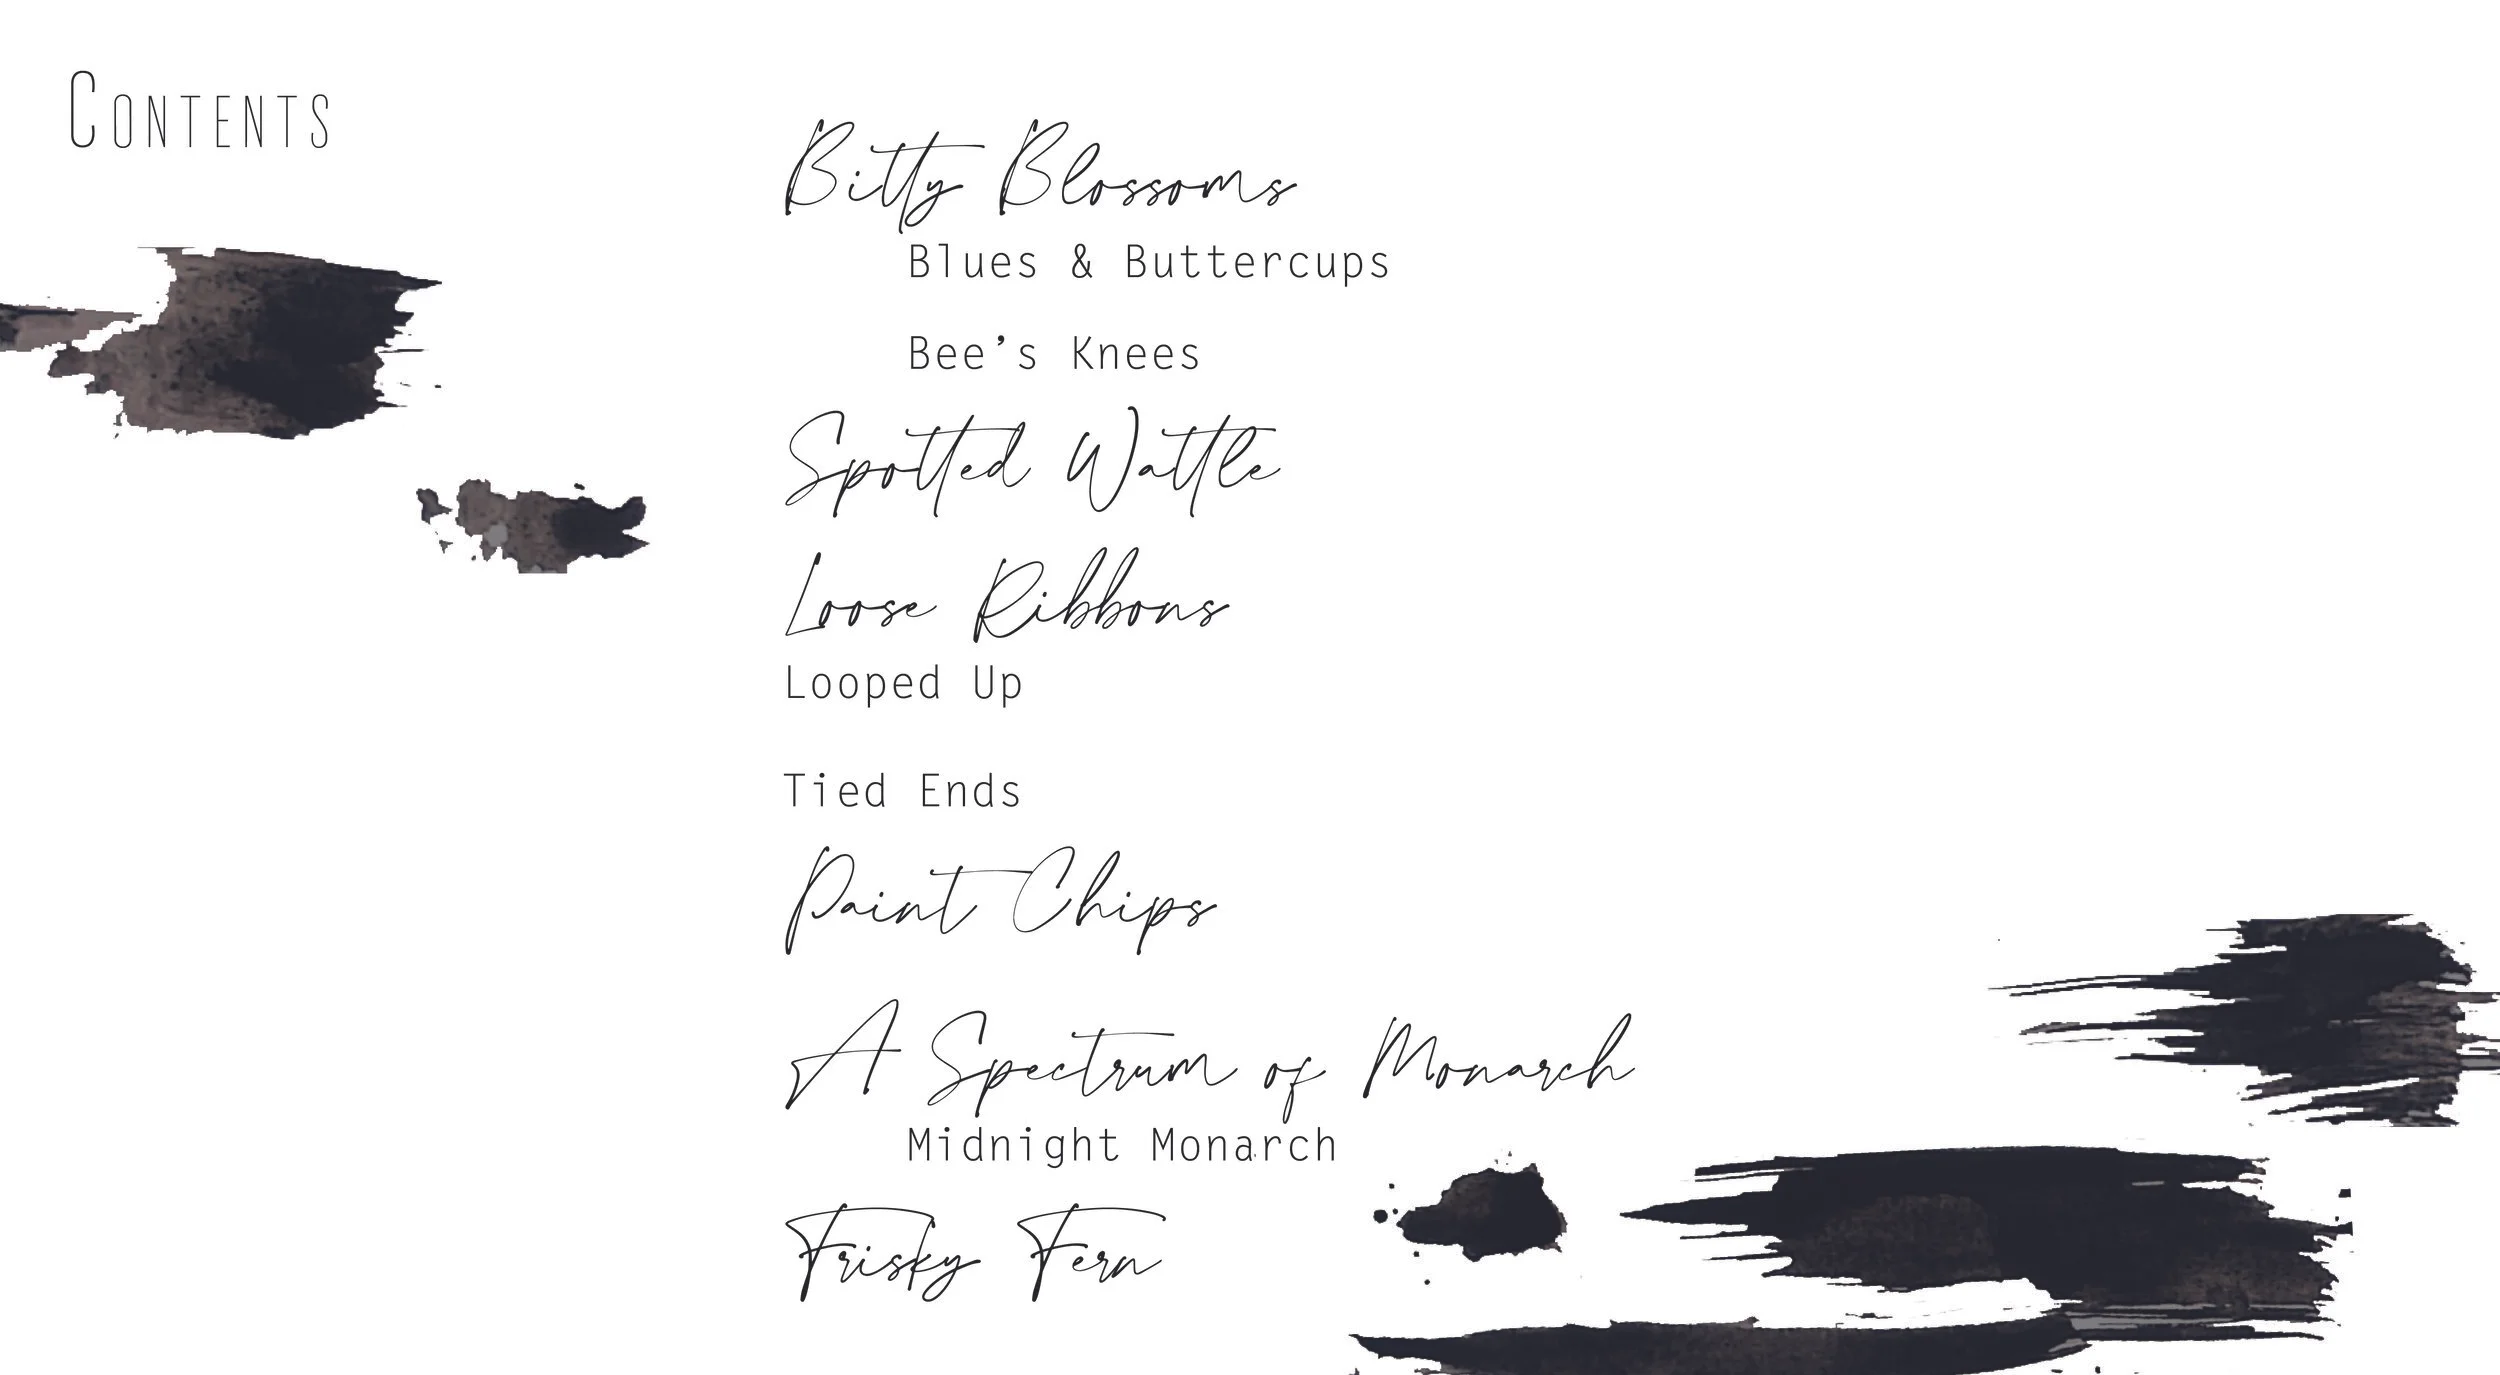 Contents
Bitty Blossoms
Blues & Buttercups
Bee’s Knees
Spotted Wattle
Loose Ribbons
Looped Up
Tied Ends
Paint Chips
A Spectrum of Monarch
Midnight Monarch
Frisky Fern